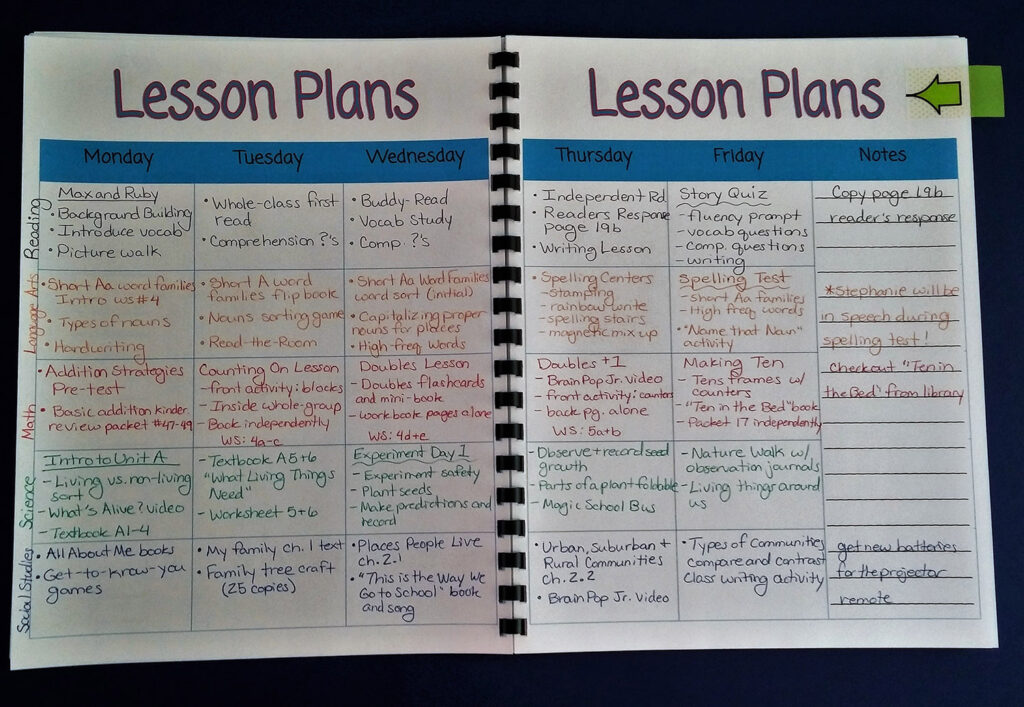 Lesson Plans
Monday
Tuesday
Wednesday
Reading
Max and Ruby
• Background Building
• Introduce vocab
• Picture walk
• Whole-class first
read
• Comprehension ?'s
• Buddy-Read
• Vocab Study
• Comp. ?'s
Language Arts
• Short Aa word families
Intro WS #4
• Types of nouns
• Handwriting
• Short A word
families flipbook
• Nouns sorting game
• Read-the-Room
• Short Aa Word Families
word sort (initial)
• Capitalizing proper
nouns for places
• High-freq words
Math
• Addition Strategies
Pre-test
• Basic addition kinder.
review packet #47-49
Counting On Lesson
- front activity: blocks
- Inside whole-group
- Back independently
WS: 4a-c
Doubles Lesson
- Doubles flashcards
and mini-book
- workbook pages alone
WS: 4d+e
Science
Intro to Unit A
- Living vs. non-living
sort
- What's Alive? video
- Textbook A1-4
- Textbook A5+6
"What Living Things
Need"
- Worksheet 5+6
Experiment Day 1
- Experiment safety
- Plant seeds
- Make predictions and
record
Social Studies
• All About Me books
• Get-to-know-you
games
• My family ch. 1 text
• Family tree craft
(25 copies)
• Places People Live
ch. 2.1
• "This is the Way We
Go to School" book
and song
Lesson Plans
Thursday
Friday
Notes
• Independent Rd
• Readers Response
page 19b
• Writing Lesson
Story Quiz
- fluency prompt
- vocab questions
- comp. questions
- writing
Copy page 19b
reader's response
• Spelling Centers
- stamping
- rainbow write
- spelling stairs
- magnetic mix up
Spelling Test
- Short Aa families
- High freq words
• "Name that Noun"
activity
*Stephanie will be
in speech during
spelling test!
Doubles +1
- BrainPop Jr. video
- front activity: counters
- back pg. alone
WS: 5a+b
Making Ten
- Tens frames w/
counters
- "Ten in the Bed" book
- Packet 17 independently
checkout "Ten in
the Bed" from library
- Observe + record seed
growth
- Parts of a plant foldable
- Magic School Bus
- Nature Walk w/
observation journals
- Living things around
us
• Urban, Suburban +
Rural Communities
ch. 2.2
• BrainPop Jr. video
• Types of Communities
compare and contrast
Class writing activity
get new batteries
for the projector
remote